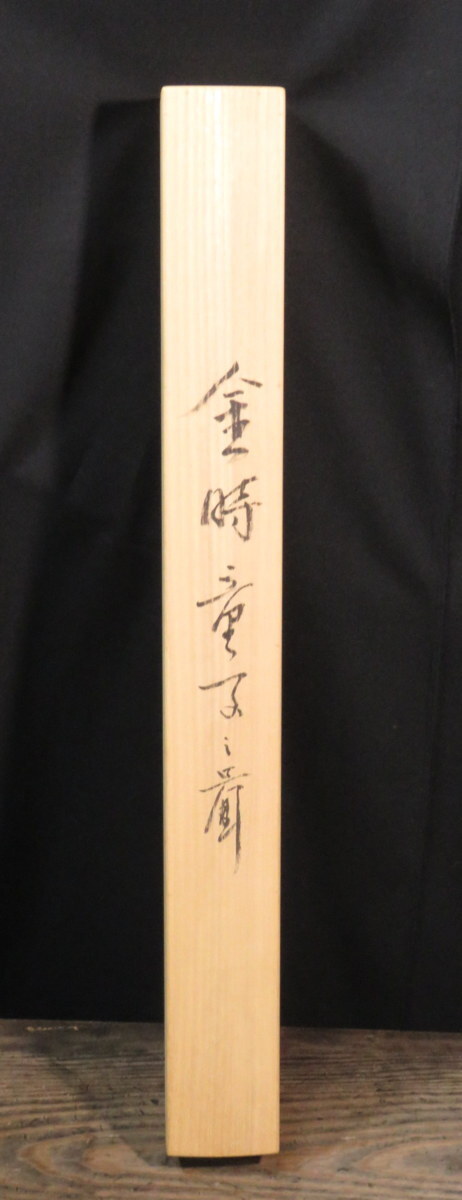 金時童子之図